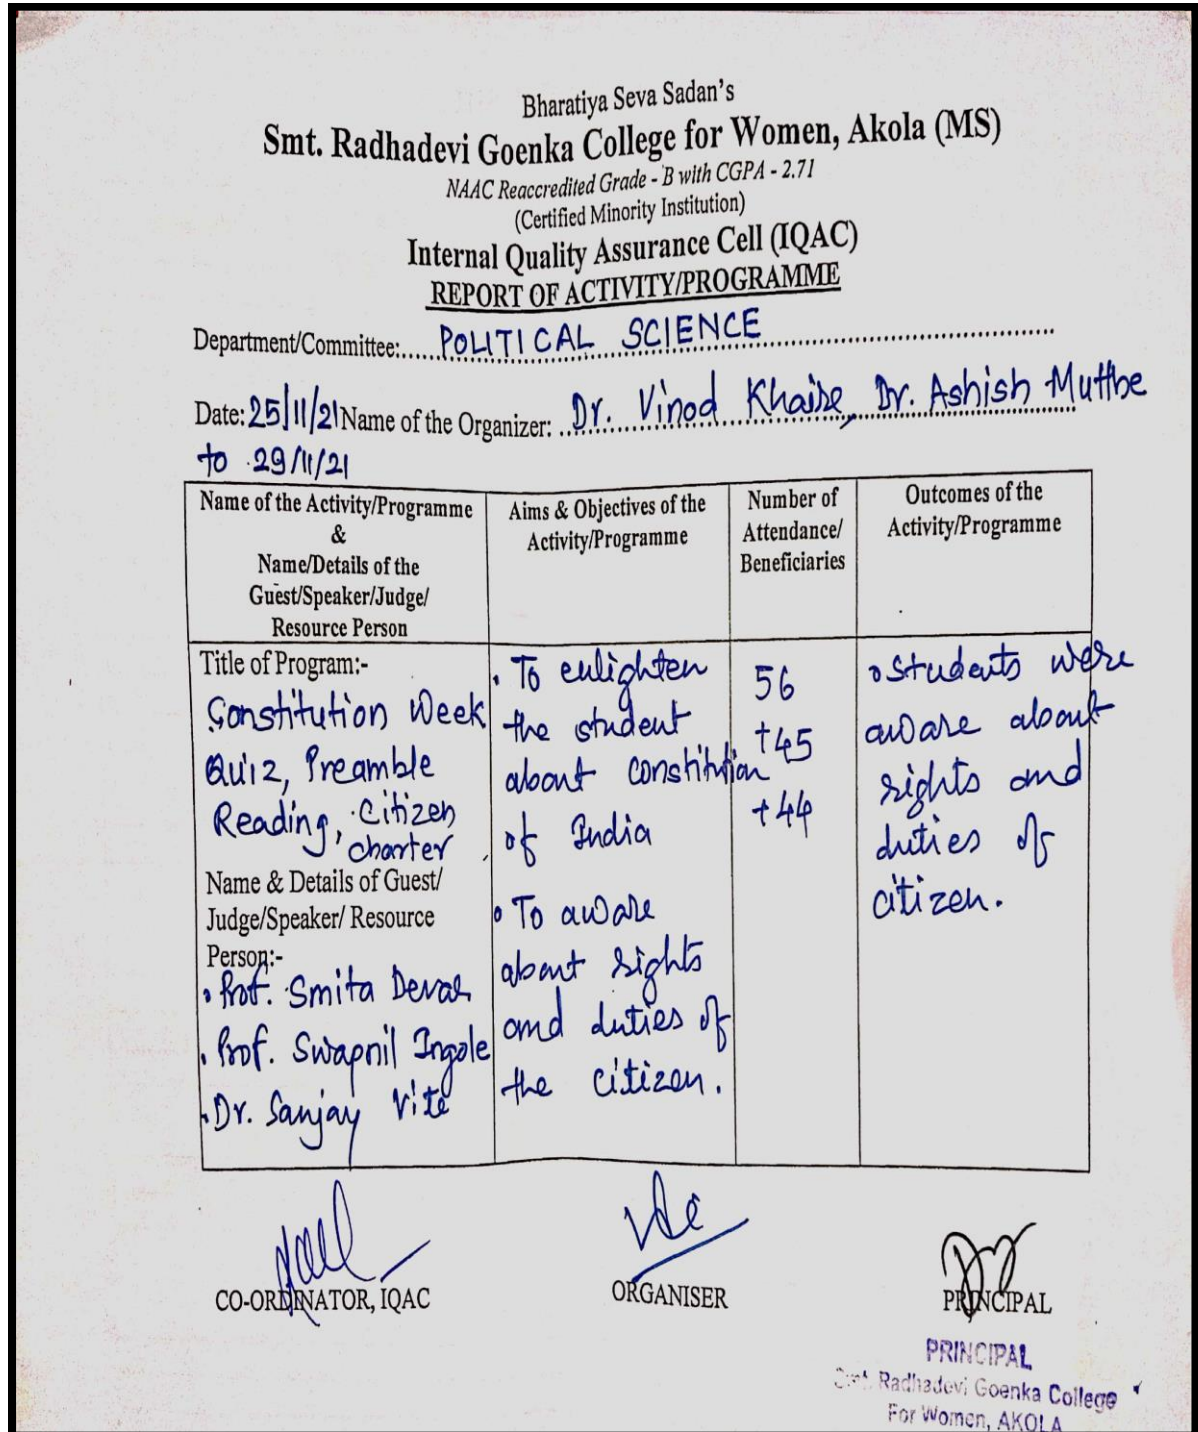 Bharatiya Seva Sadan's
Smt. Radhadevi Goenka College for Women, Akola (MS)
NAAC Reaccredited Grade - B with CGPA - 2.71
(Certified Minority Institution)
Internal Quality Assurance Cell (IQAC)
REPORT OF ACTIVITY/PROGRAMME
Department/Committee:.....POLITICAL SCIENCE
Date: 25/11/21 Name of the Organizer: ..Dr. Vinod Khaire, Dr. Ashish Mutthe
to 29/11/21
Name of the Activity/Programme
&
Name/Details of the
Guest/Speaker/Judge/
Resource Person
Aims & Objectives of the
Activity/Programme
Number of
Attendance/
Beneficiaries
Outcomes of the
Activity/Programme
Title of Program:-
Constitution Week
Quiz, Preamble
Reading, Citizen
charter
Name & Details of Guest/
Judge/Speaker/ Resource
Person:-
• Prof. Smita
• Prof. Swapnil Ingole
• Dr. Sanjay Vite
• To enlighten
the student
about constitution
of India
• To aware
about rights
and duties of
the citizen.
56
+45
+44
• Students were
aware about
rights and
duties of
citizen.
CO-ORDINATOR, IQAC
ORGANISER
PRINCIPAL
PRINCIPAL
Smt. Radhadevi Goenka College
For Women, AKOLA